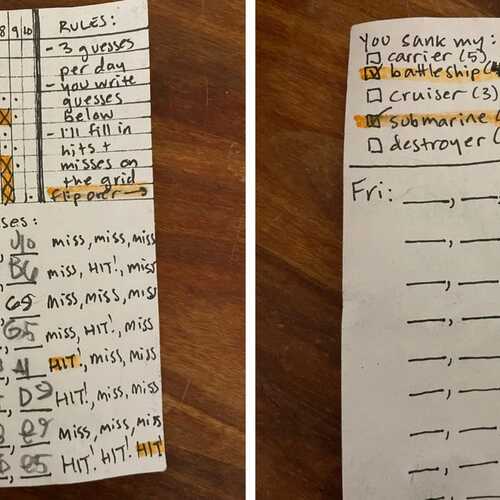 8 9 10
RULES:
- 3 guesses
per day
- you write
guesses
below
- I'll fill in
hits +
misses on
the grid
flip over →
ses:
J10 miss, miss, miss
B6 miss, HIT!, miss
G9 Miss, Miss, Miss
G5 miss, HIT!, miss
A1 HIT!, miss, miss
D9 HIT!, Miss, miss
e9 Miss, Miss, Miss
e5 HIT! HIT! HIT!
You sank my:
carrier (5)
battleship (4
cruiser (3)
submarine (
destroyer (
Fri: ___, ___,